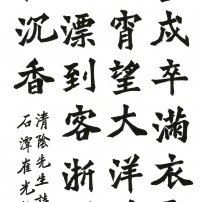 戍卒滿衣
宵望大洋
漂到客浙
沉香
清陰先生詩
石潭崔光